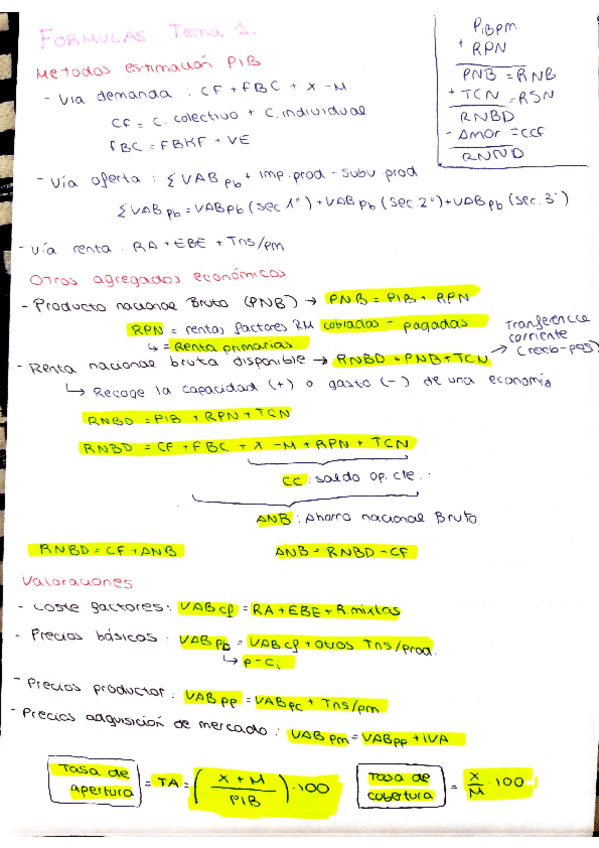 FORMULAS Tema 1.
PIBpm
+ RPN
PNB = RNB
+ TCN = RSN
RNBD
- Amor = CCF
RNND
Metodos estimación PIB
- Via demanda : CF + FBC + X - M
CF = C. colectivo + C. individual
FBC = FBKF + VE
- Vía oferta : ΣVABpb + imp.prod - subv.prod
ΣVABpb = VABpb (sec 1º) + VABpb (sec. 2º) + VABpb (sec. 3º)
- Vía renta : RA + EBE + Tns/pm
Otros agregados económicos
- Producto nacional Bruto (PNB) → PNB = PIB + RPN
RPN = rentas factores RM cobradas - pagadas
↳ = Renta primarias
Transferencia corriente (recib-pag)
- Renta nacional bruta disponible → RNBD = PNB + TCN →
↳ Recoge la capacidad (+) o gasto (-) de una economía
RNBD = PIB + RPN + TCN
RNBD = CF + FBC + X - M + RPN + TCN
CC : saldo op. cte.
ANB : Ahorro nacional Bruto
RNBD = CF + ANB
ANB = RNBD - CF
Valoraciones
- Coste factores : VABcf = RA + EBE + R.mixtas
- Precios básicos : VABpb = VABcf + otros Tns/prod.
↳ P - Ci
- Precios productor : VABpp = VABpc + Tns/pm
- Precios adquisición de mercado : VABpm = VABpp + IVA
Tasa de apertura = TA = (X + M / PIB) · 100
Tasa de cobertura = X / M · 100